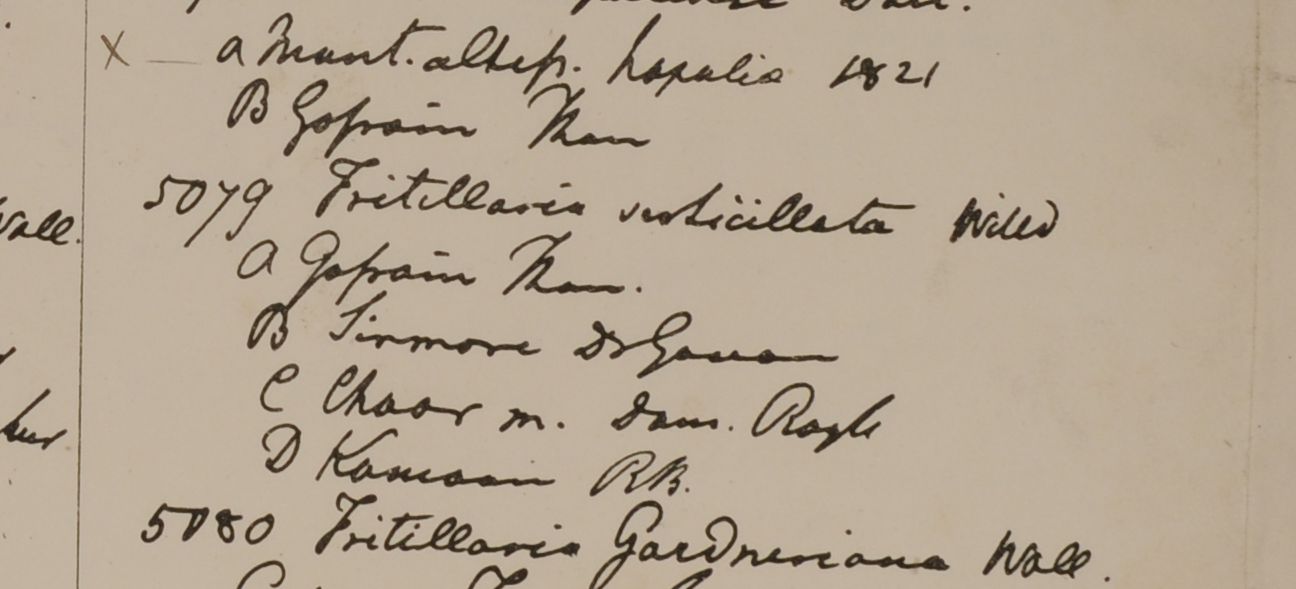 Wall.
X — a Mont. altiss. Napalia 1821
B Gossain Than
5079 Fritillaria verticillata Willd
Wall.
A Gossain Than.
B Sirmore Dr Govan
C Chaor m. dom. Royle
D Kamaon RB.
5080 Fritillaria Gardneriana Wall.